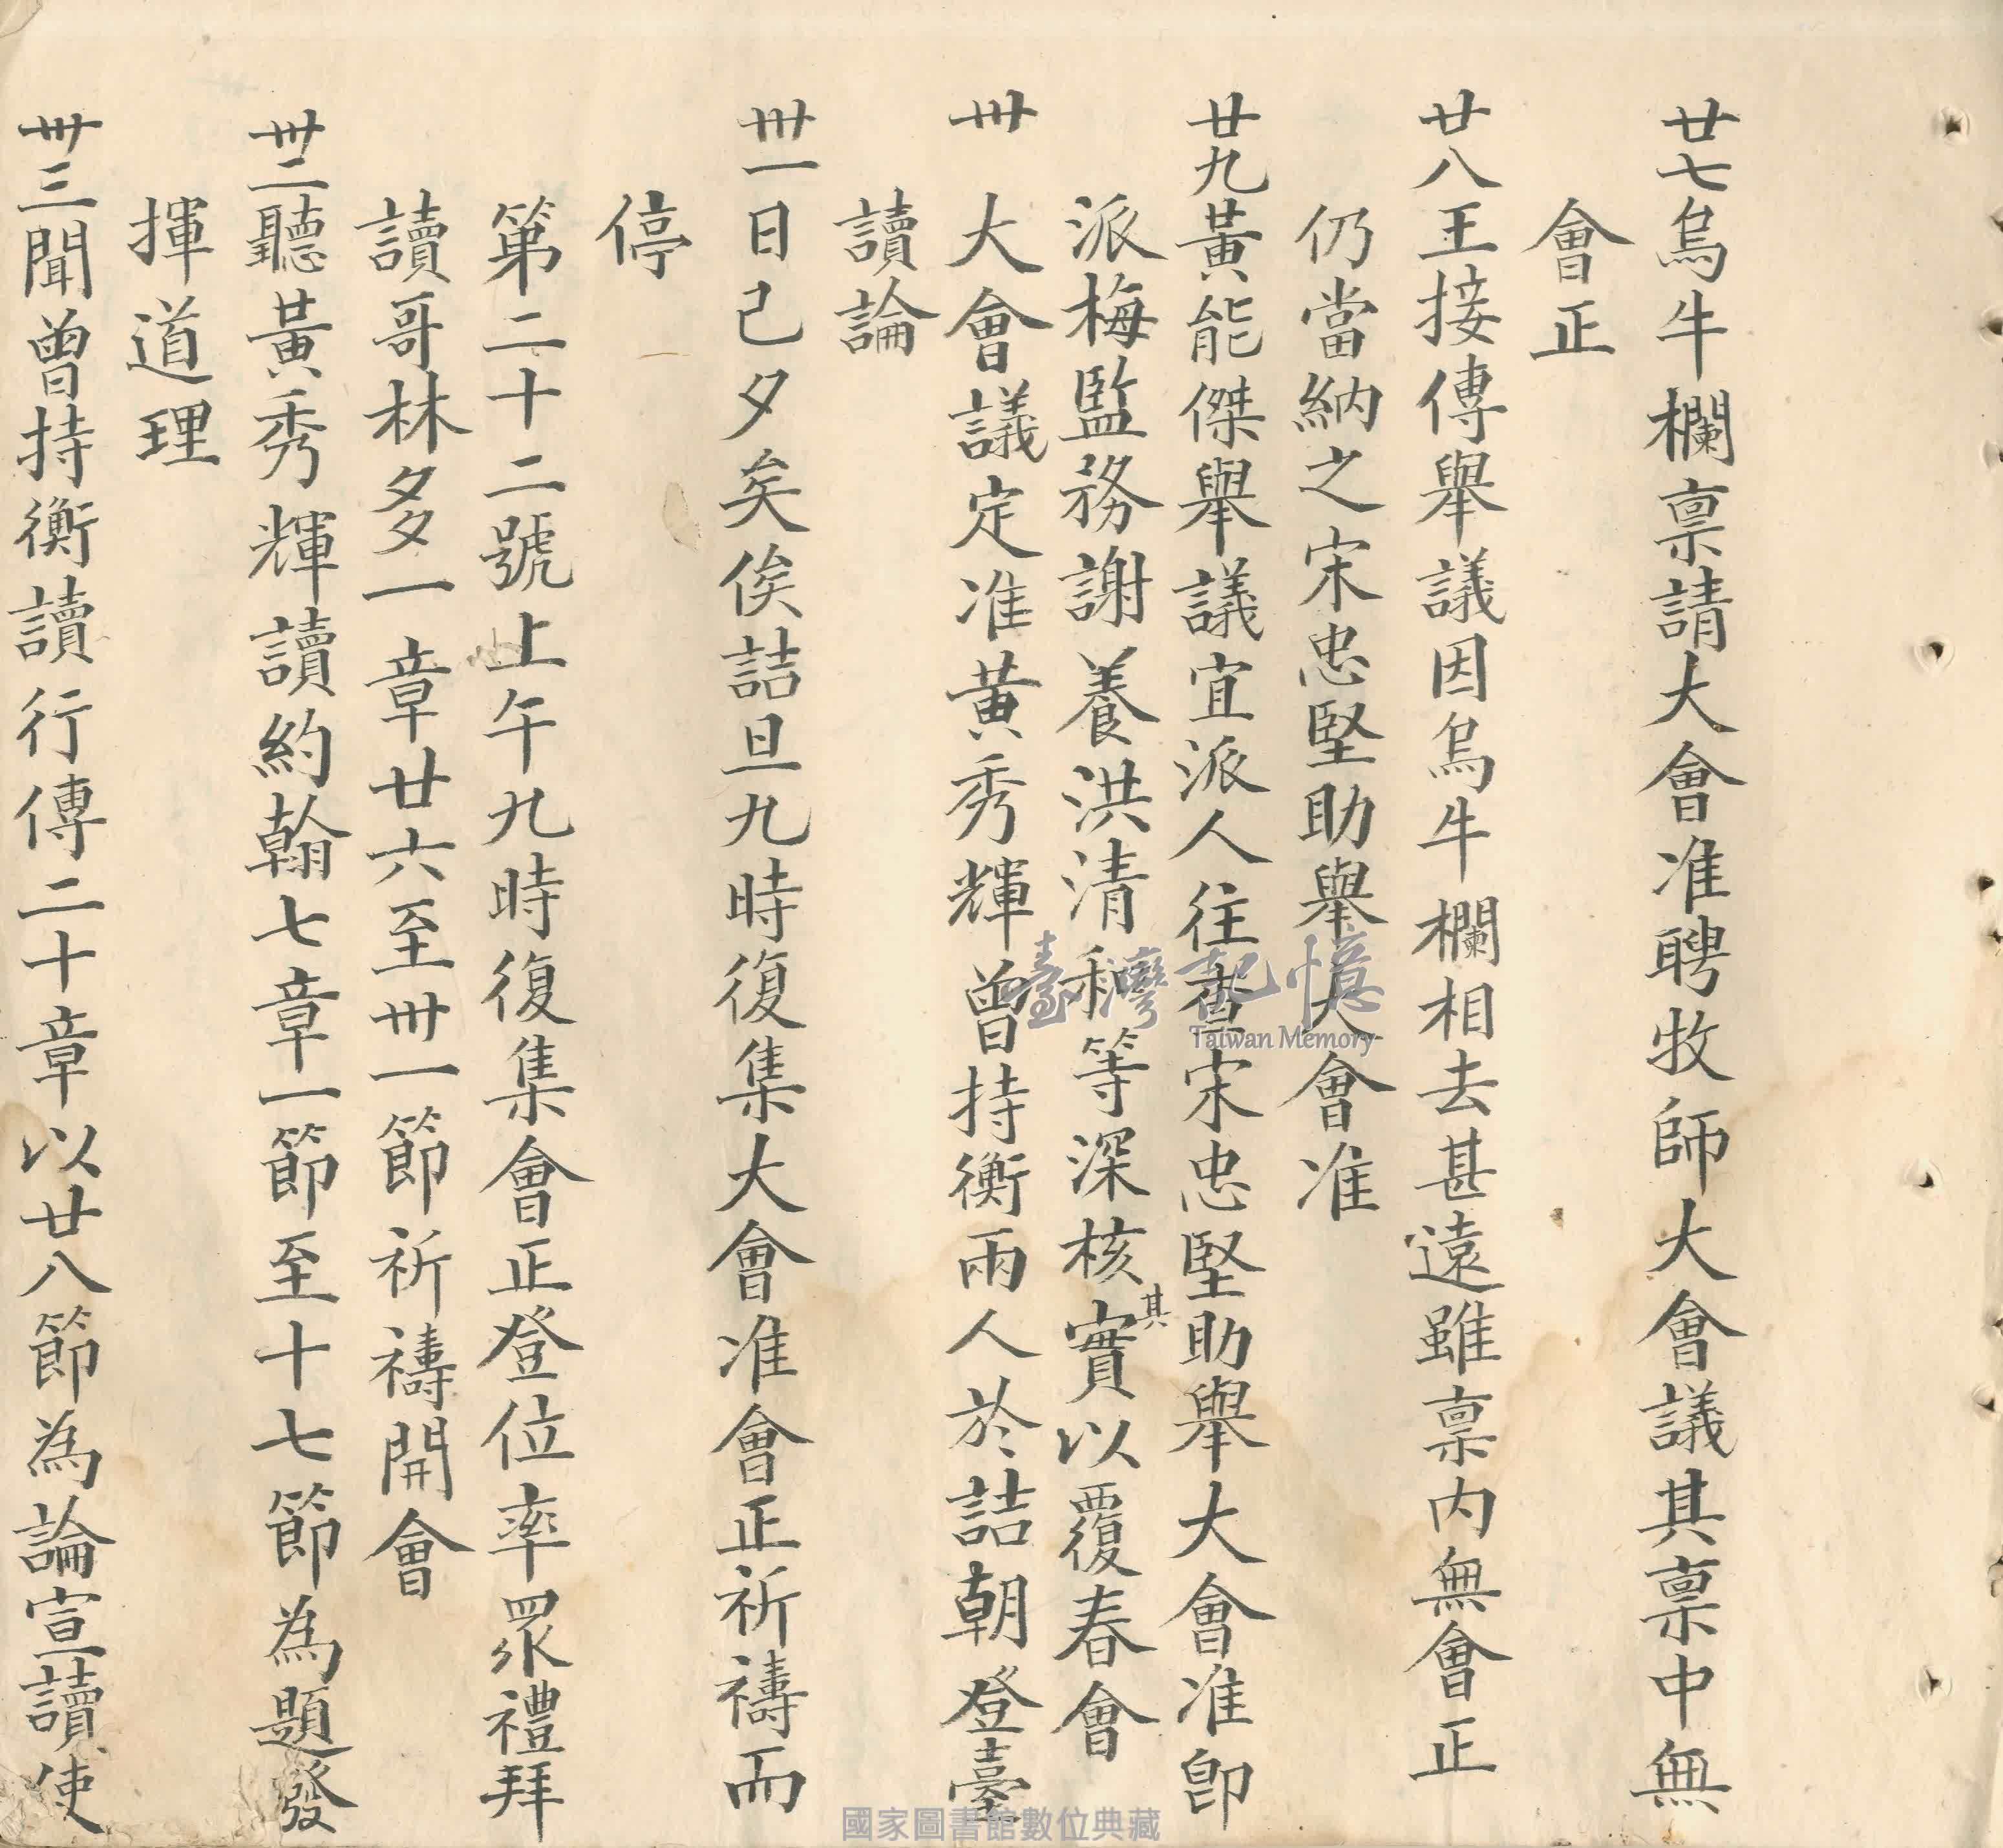 廿七烏牛欄禀請大會准聘牧師大會議其禀中無
會正
廿八王接傳舉議因烏牛欄相去甚遠雖禀内無會正
仍當納之宋忠堅助舉大會准
廿九黃能傑舉議宜派人往查宋忠堅助舉大會准即
派梅監務謝養洪清和等深核其實以覆春會
卅大會議定准黃秀輝曾持衡兩人於詰朝登臺
讀論
卅一日已夕矣俟詰旦九時復集大會准會正祈禱而
停
第二十二號上午九時復集會正登位率眾禮拜
讀哥林多一章廿六至卅一節祈禱開會
卅二聽黃秀輝讀約翰七章一節至十七節為題發
揮道理
卅三聞曾持衡讀行傳二十章以廿八節為論宣讀使
臺灣記憶
Taiwan Memory
國家圖書館數位典藏